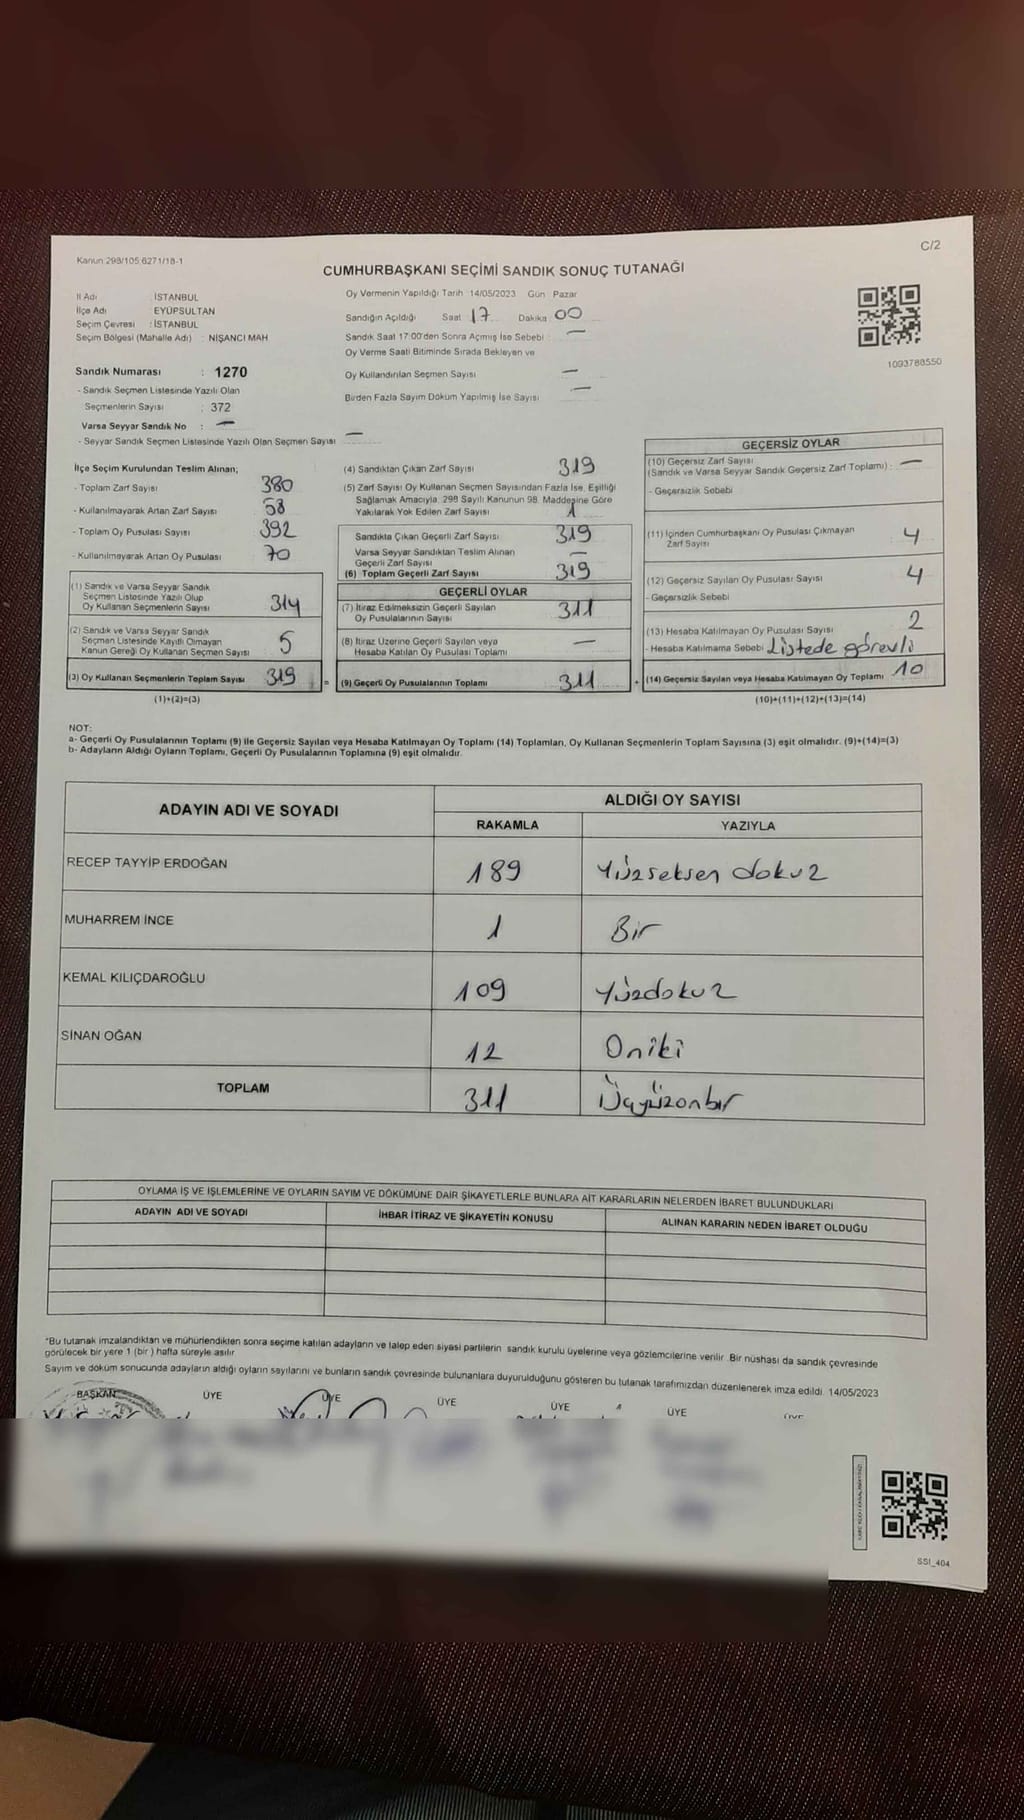 C/2
Kanun 298/105 6271/18-1
CUMHURBAŞKANI SEÇİMİ SANDIK SONUÇ TUTANAĞI
İl Adı : İSTANBUL
İlçe Adı : EYÜPSULTAN
Seçim Çevresi : İSTANBUL
Seçim Bölgesi (Mahalle Adı) : NİŞANCI MAH
Oy Vermenin Yapıldığı Tarih 14/05/2023 Gün Pazar
Sandığın Açıldığı Saat 17 Dakika 00
Sandık Saat 17:00'den Sonra Açmış İse Sebebi : —
Oy Verme Saati Bitiminde Sırada Bekleyen ve
Oy Kullandırılan Seçmen Sayısı —
Birden Fazla Sayım Döküm Yapılmış İse Sayısı —
1093788550
Sandık Numarası : 1270
- Sandık Seçmen Listesinde Yazılı Olan
Seçmenlerin Sayısı : 372
Varsa Seyyar Sandık No : —
- Seyyar Sandık Seçmen Listesinde Yazılı Olan Seçmen Sayısı —
İlçe Seçim Kurulundan Teslim Alınan;
- Toplam Zarf Sayısı 380
- Kullanılmayarak Artan Zarf Sayısı 58
- Toplam Oy Pusulası Sayısı 392
- Kullanılmayarak Artan Oy Pusulası 70
(1) Sandık ve Varsa Seyyar Sandık
Seçmen Listesinde Yazılı Olup
Oy Kullanan Seçmenlerin Sayısı 314
(2) Sandık ve Varsa Seyyar Sandık
Seçmen Listesinde Kayıtlı Olmayan
Kanun Gereği Oy Kullanan Seçmen Sayısı 5
(3) Oy Kullanan Seçmenlerin Toplam Sayısı 319 =
(1)+(2)=(3)
(4) Sandıktan Çıkan Zarf Sayısı 319
(5) Zarf Sayısı Oy Kullanan Seçmen Sayısından Fazla İse, Eşitliği
Sağlamak Amacıyla, 298 Sayılı Kanunun 98. Maddesine Göre
Yakılarak Yok Edilen Zarf Sayısı 1
Sandıkta Çıkan Geçerli Zarf Sayısı 319
Varsa Seyyar Sandıktan Teslim Alınan
Geçerli Zarf Sayısı —
(6) Toplam Geçerli Zarf Sayısı 319
GEÇERLİ OYLAR
(7) İtiraz Edilmeksizin Geçerli Sayılan
Oy Pusulalarının Sayısı 311
(8) İtiraz Üzerine Geçerli Sayılan veya
Hesaba Katılan Oy Pusulası Toplamı —
(9) Geçerli Oy Pusulalarının Toplamı 311 +
GEÇERSİZ OYLAR
(10) Geçersiz Zarf Sayısı
(Sandık ve Varsa Seyyar Sandık Geçersiz Zarf Toplamı) : —
- Geçersizlik Sebebi
(11) İçinden Cumhurbaşkanı Oy Pusulası Çıkmayan
Zarf Sayısı 4
(12) Geçersiz Sayılan Oy Pusulası Sayısı 4
- Geçersizlik Sebebi
(13) Hesaba Katılmayan Oy Pusulası Sayısı 2
- Hesaba Katılmama Sebebi Listede görevli
(14) Geçersiz Sayılan veya Hesaba Katılmayan Oy Toplamı 10
(10)+(11)+(12)+(13)=(14)
NOT:
a- Geçerli Oy Pusulalarının Toplamı (9) ile Geçersiz Sayılan veya Hesaba Katılmayan Oy Toplamı (14) Toplamları, Oy Kullanan Seçmenlerin Toplam Sayısına (3) eşit olmalıdır. (9)+(14)=(3)
b- Adayların Aldığı Oyların Toplamı, Geçerli Oy Pusulalarının Toplamına (9) eşit olmalıdır.
ADAYIN ADI VE SOYADI
ALDIĞI OY SAYISI
RAKAMLA YAZIYLA
RECEP TAYYİP ERDOĞAN 189 Yüzseksen dokuz
MUHARREM İNCE 1 Bir
KEMAL KILIÇDAROĞLU 109 Yüzdokuz
SİNAN OĞAN 12 Oniki
TOPLAM 311 Üçyüzonbir
OYLAMA İŞ VE İŞLEMLERİNE VE OYLARIN SAYIM VE DÖKÜMÜNE DAİR ŞİKAYETLERLE BUNLARA AİT KARARLARIN NELERDEN İBARET BULUNDUKLARI
ADAYIN ADI VE SOYADI İHBAR İTİRAZ VE ŞİKAYETİN KONUSU ALINAN KARARIN NEDEN İBARET OLDUĞU
*Bu tutanak imzalandıktan ve mühürlendikten sonra seçime katılan adayların ve talep eden siyasi partilerin sandık kurulu üyelerine veya gözlemcilerine verilir. Bir nüshası da sandık çevresinde
görülecek bir yere 1 (bir ) hafta süreyle asılır.
Sayım ve döküm sonucunda adayların aldığı oyların sayılarını ve bunların sandık çevresinde bulunanlara duyurulduğunu gösteren bu tutanak tarafımızdan düzenlenerek imza edildi. 14/05/2023
BAŞKAN ÜYE ÜYE ÜYE ÜYE ÜYE ÜYE
SSI_404